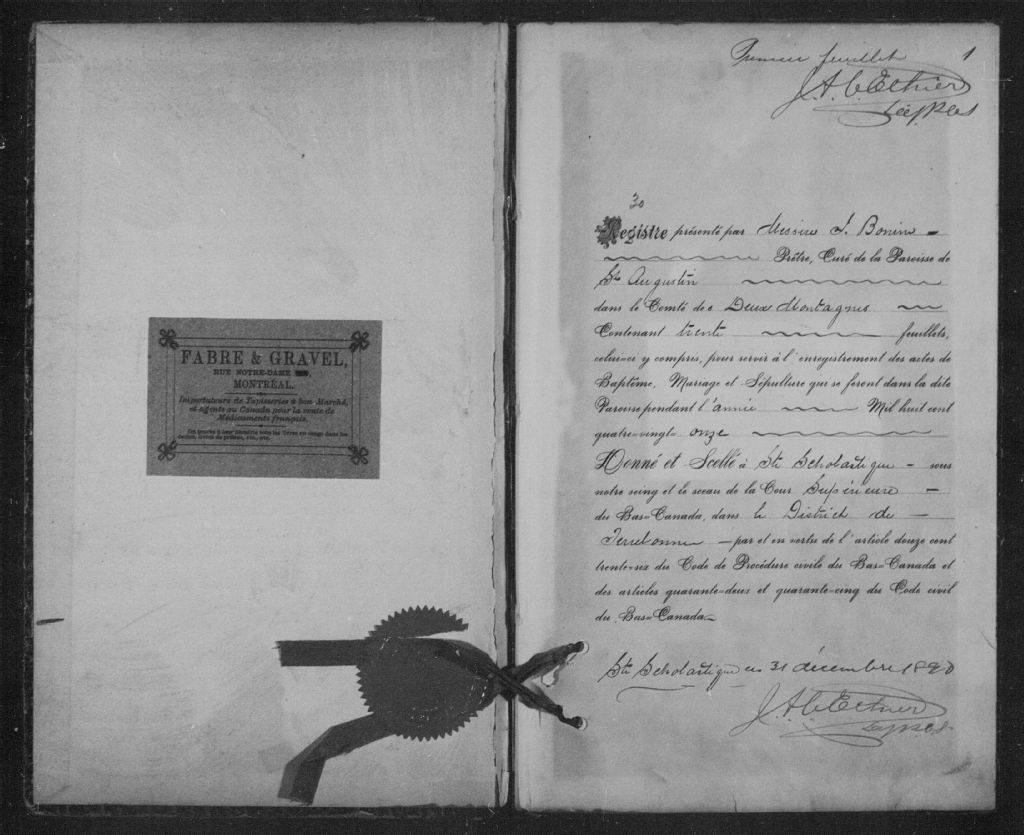 FABRE & GRAVEL,
RUE NOTRE-DAME
MONTRÉAL.
Importateurs de Tapisseries à bon Marché,
et agents au Canada pour la vente de
Médicaments français.
On trouve à leur librairie tous les livres en usage dans les
Premier feuillet 1
J.A.C. Ethier
30
Registre présenté par Messire J. Bonin
Prêtre, Curé de la Paroisse de
Ste Augustin
dans le Comté des Deux Montagnes
Contenant trente feuillets,
celui-ci y compris, pour servir à l'enregistrement des actes de
Baptême, Mariage et Sépulture qui se feront dans la dite
Paroisse pendant l'année Mil huit cent
quatre-vingt onze
Donné et Scellé à Ste Scholastique sous
notre seing et le sceau de la Cour Supérieure
du Bas-Canada, dans le District de
Terrebonne par et en vertu de l'article douze cent
trente-six du Code de Procédure civile du Bas-Canada et
des articles quarante-deux et quarante-cinq du Code civil
du Bas-Canada.
Ste Scholastique ce 31 décembre 1890
J.A.C. Ethier